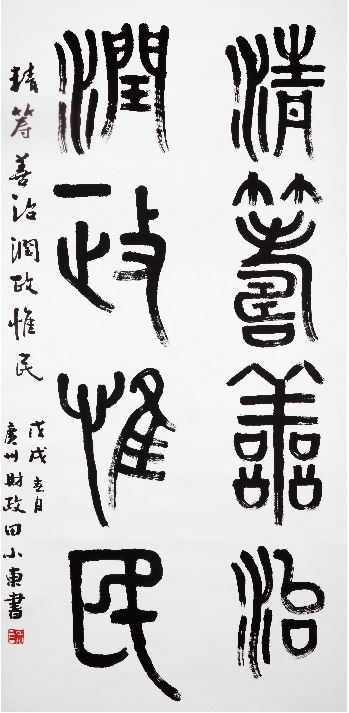 清籌善治
潤政惟民
精筹善治潤政惟民
戊戌春月
廣州财政田小東書